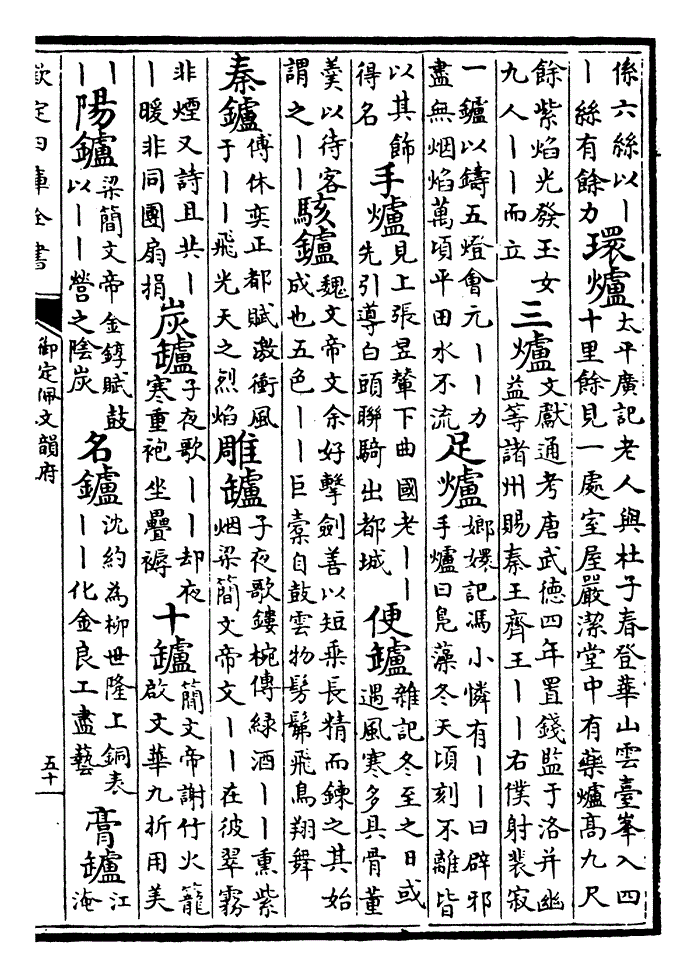 係六絲以｜
｜絲有餘力
環爐
太平廣記老人與杜子春登華山雲臺峯入四
十里餘見一處室屋嚴潔堂中有藥爐高九尺
餘紫焰光發玉女
九人｜｜而立
三爐
文獻通考唐武德四年置錢監于洛并幽
益等諸州賜秦王齊王｜｜右僕射裴寂
一鑪以鑄五燈會元｜｜力
盡無烟焰萬頃平田水不流
足爐
嫏嬛記馮小憐有｜｜曰辟邪
手爐曰鳧藻冬天頃刻不離皆
以其飾
得名
手爐
見上張昱輦下曲國老｜｜
先引導白頭聯騎出都城
便鑪
雜記冬至之日或
遇風寒多具骨董
羹以待客
謂之｜｜
駭鑪
魏文帝文余好擊劍善以短乘長精而鍊之其始
成也五色｜｜巨橐自鼓雲物髣髴飛鳥翔舞
秦鑪
傅休奕正都賦激衝風
于｜｜飛光天之烈焰
雕鑪
子夜歌鏤椀傳綠酒｜｜熏紫
烟梁簡文帝文｜｜在彼翠霧
非煙又詩且共｜
｜暖非同團扇捐
炭鑪
子夜歌｜｜却夜
寒重袍坐疊褥
十鑪
簡文帝謝竹火籠
啟文華九折用美
｜
｜
陽鑪
梁簡文帝金錞賦鼓
以｜｜營之陰炭
名鑪
沈約為柳世隆上銅表
｜｜化金良工盡藝
膏鑪
江
淹
欽定四庫全書
御定佩文韻府
五十